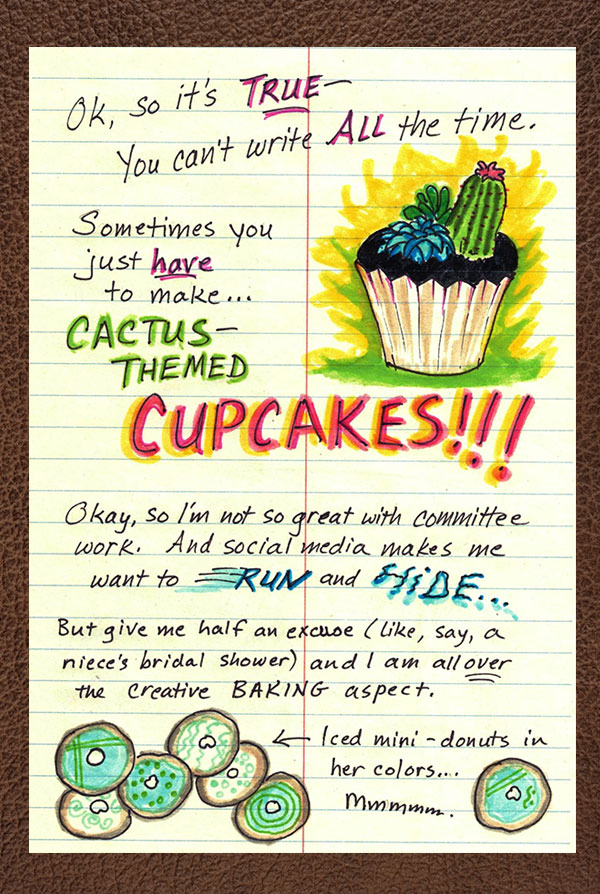 Ok, so it's TRUE—
You can't write ALL the time.
Sometimes you
just have
to make...
CACTUS—
THEMED
CUPCAKES!!!
Okay, so I'm not so great with committee
work. And social media makes me
want to RUN and HIDE...
But give me half an excuse (like, say, a
niece's bridal shower) and I am all over
the creative BAKING aspect.
← Iced mini-donuts in
her colors....
Mmmmmm.